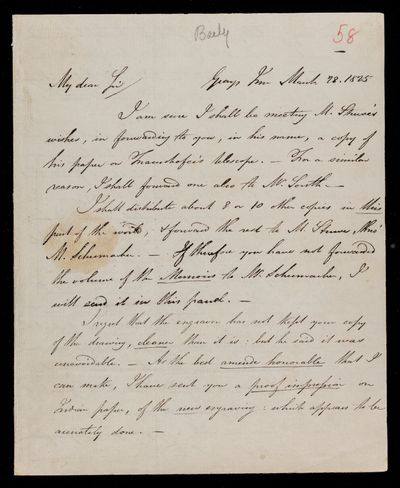 Baily
58
My dear Sir/ Grays Inn March 28. 1825
I am sure I shall be meeting M. Struve's
wishes, in forwarding to you, in his name, a copy of
his paper on Fraunhofer's telescope. — For a similar
reason, I shall forward one also to Mr. South. —
I shall distribute about 8 or 10 other copies in this
part of the world, & forward the rest to M. Struve, thro'
M. Schumacher. — If therefore you have not forwarded
the volume of the Memoirs to M. Schumacher, I
will send it in this parcel. —
I regret that the engraver has not kept your copy
of the drawing, cleaner than it is: but he said it was
unavoidable. — As the best amende honorable that I
can make, I have sent you a proof impression on
Indian paper, of the new engraving: which appears to be
accurately done. —